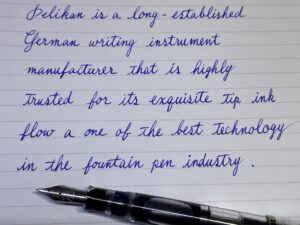 Pelikan is a long-established
German writing instrument
manufacturer that is highly
trusted for its exquisite tip ink
flow a one of the best technology
in the fountain pen industry.